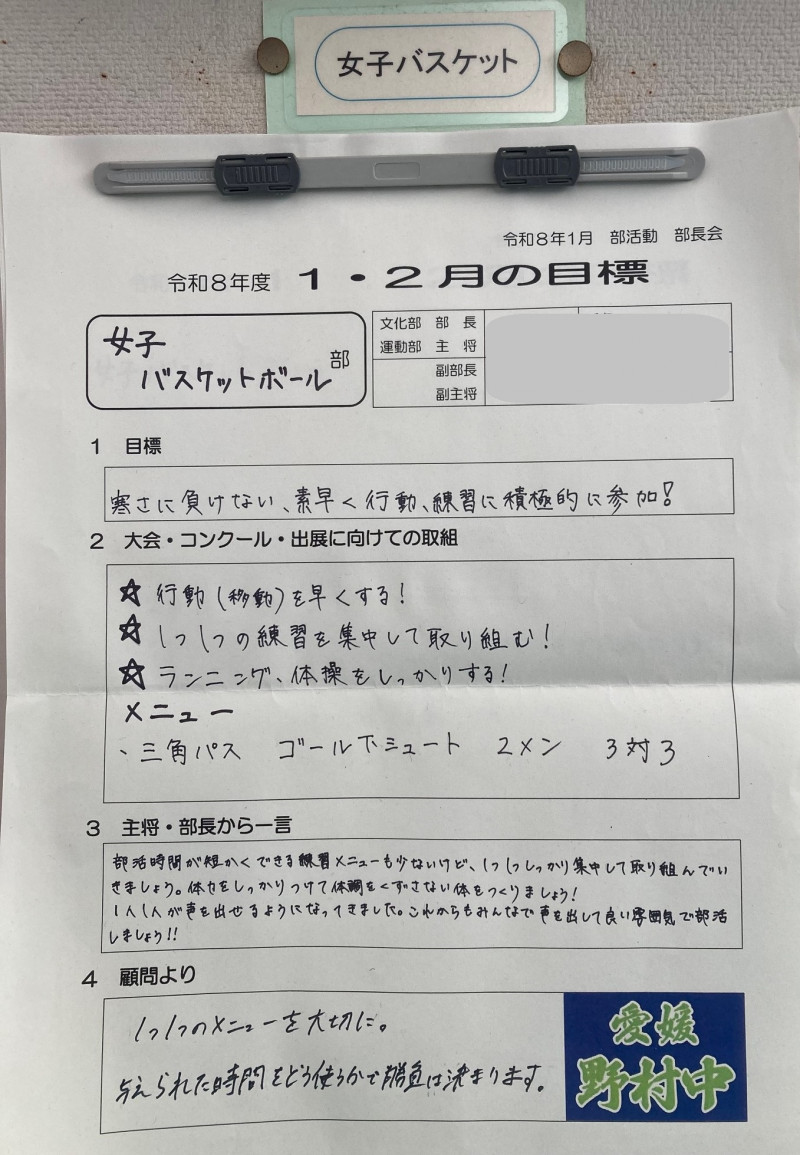 女子バスケット
令和8年1月 部活動 部長会
令和8年度 1・2月の目標
女子
バスケットボール部
文化部 部 長
運動部 主 将
副部長
副主将
1 目標
寒さに負けない、素早く行動、練習に積極的に参加!
2 大会・コンクール・出展に向けての取組
☆ 行動(移動)を早くする!
☆ 1つ1つの練習を集中して取り組む!
☆ ランニング、体操をしっかりする!
メニュー
、三角パス ゴール下シュート 2メン 3対3
3 主将・部長から一言
部活時間が短かくできる練習メニューも少ないけど、1つ1つしっかり集中して取り組んでい
きましょう。体力をしっかりつけて体調をくずさない体をつくりましょう!
1人1人が声を出せるようになってきました。これからもみんなで声を出して良い雰囲気で部活
しましょう!!
4 顧問より
1つ1つのメニューを大切に。
与えられた時間をどう使うかで勝負は決まります。
愛媛
野村中